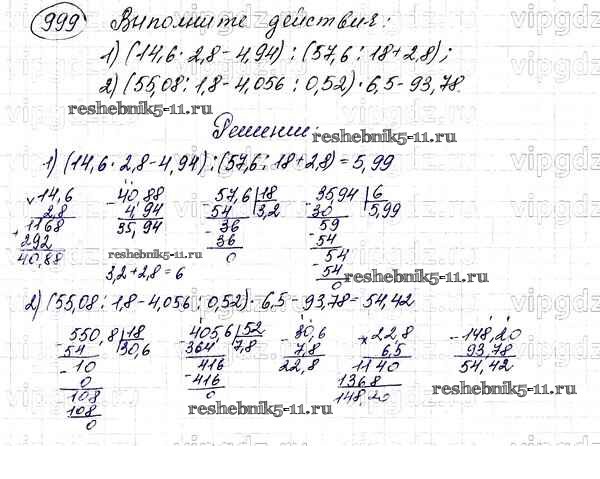 999 Выполните действия:
1) (14,6 · 2,8 - 4,94) : (57,6 : 18 + 2,8);
2) (55,08 : 1,8 - 4,056 : 0,52) · 6,5 - 93,78.
reshebnik5-11.ru
Решение:
reshebnik5-11.ru
1) (14,6 · 2,8 - 4,94) : (57,6 : 18 + 2,8) = 5,99
× 14,6 - 40,88 - 57,6 | 18 - 35,94 | 6
2,8 4,94 54 3,2 30 5,99
+ 1168 35,94 - 36 - 59
292 36 - 54
40,88 0 - 54
54
0
reshebnik5-11.ru
3,2 + 2,8 = 6
reshebnik5-11.ru
2) (55,08 : 1,8 - 4,056 : 0,52) · 6,5 - 93,78 = 54,42
- 550,8 | 18 - 405,6 | 52 - 30,6 × 22,8 - 148,20
54 30,6 364 7,8 7,8 6,5 93,78
- 10 - 416 22,8 1140 54,42
0 416 1368
108 0 148,20
108
0
reshebnik5-11.ru
reshebnik5-11.ru
vipgdz